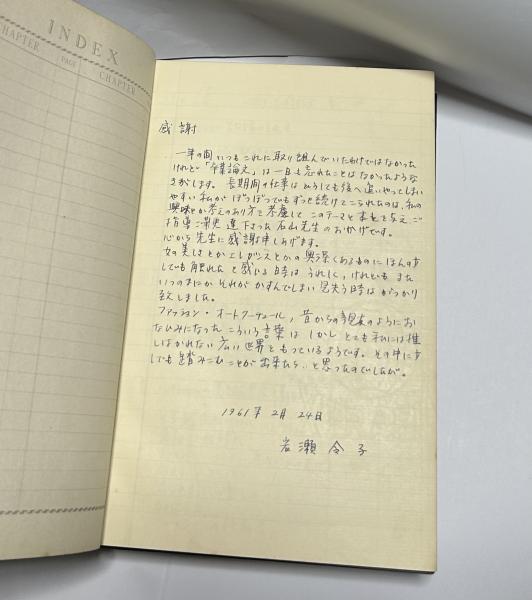 INDEX
CHAPTER PAGE CHAPTER
感謝
一年の間いつもこれに取り組んでいたわけではなかった
けれど「卒業論文」は一日も忘れたことはなかったような
きがします。長期間の仕事はどうしても後へ追いやってしまい
やすい私がぼつぼつでもずっと続けてこられたのは、私の
興味とか考えのあり方を考慮してこのテーマを与え、ご
指導ご鞭撻下さった石山先生のおかげです。
心から先生に感謝申しあげます。
女の美しさとかエレガンスとかの興深くあるものにほんの少
しでも触れたと感じる時はうれしく、けれどもまた
いつのまにかそれがかすんでしまい見失う時はがっかり
致しました。
ファッション・オートクーチュール、昔からの親友のようにお
なじみになったこういう言葉はしかしとても私には推
しはかれない広い世界をもっているようです。その中に少
しでも踏みこむことが出来たら、と思ったのでしたが。
1961年2月24日
岩瀬令子